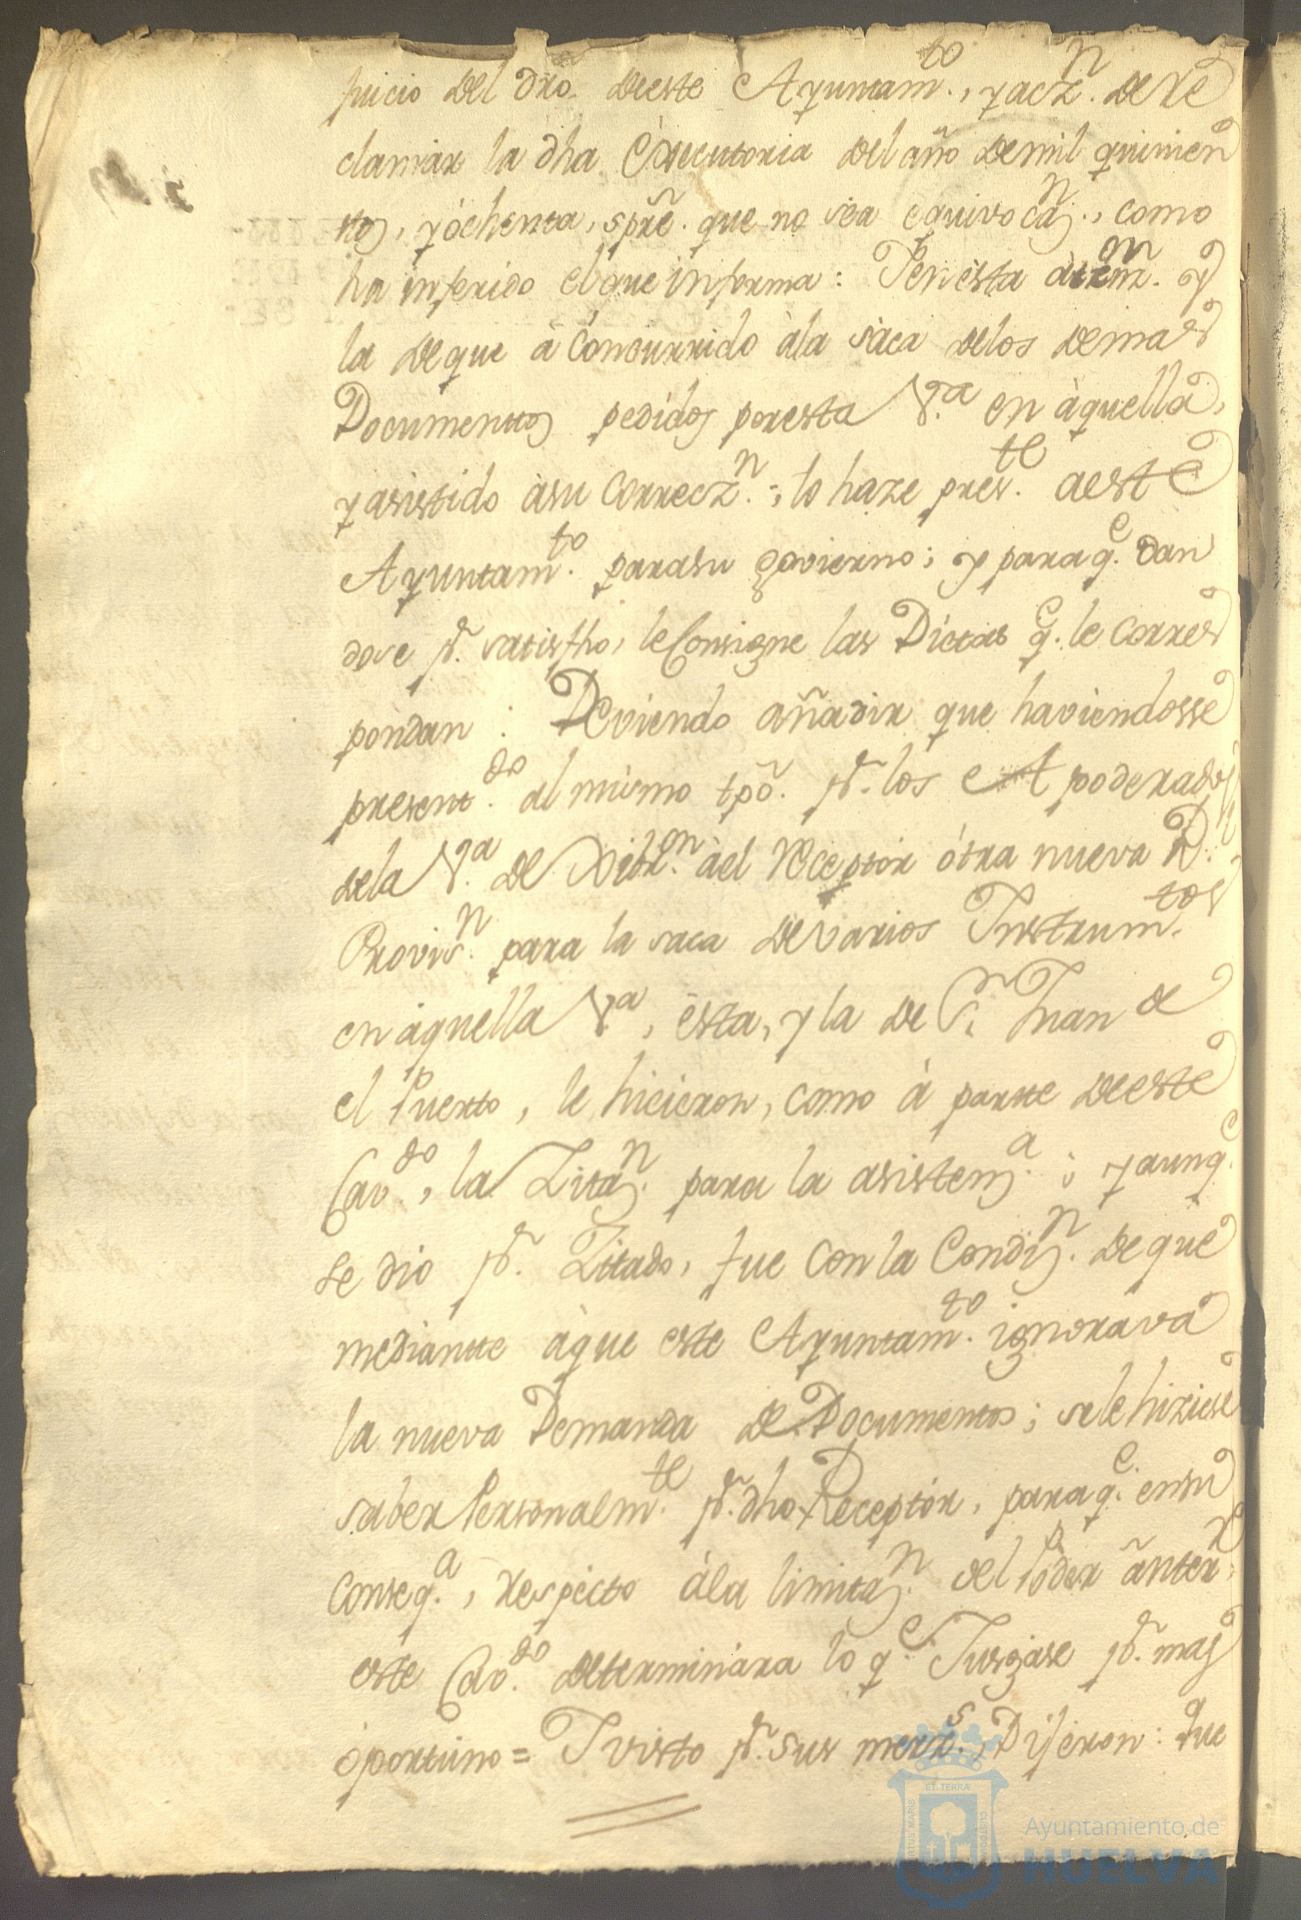 juicio del dro. deeste Ayuntam.to, y acz.n de Re
clamar la dha Executoria del año de mil quinien
tos, y óchenta, spre. que no sea equivocaz.n, como
ha inferido el que informa: Y en ésta atenz.on y
la de que à concurrido àla sáca delos demas
Documentos pedidos por esta V.a en àquella,
y asistido àsu correcz.n; lo haze pres.te a este
Ayuntam.to para su govierno; y para q.e dan
dose p.r satisfho, le Consigne las Dietas q.e le corres
pondan: Deviendo añadir que haviendosse
present.do al mismo tpõ. p.r los Apoderados
dela V.a de Gibr.on àel Receptor ótra nueva R.
Provis.n para la saca de varios Instrum.tos
en àquella V.a, ésta, y la de S.n Juan de
el Puerto, le hicieron, como à parte de este
Cav.do, la Zitaz.n para la asistenz.a; y aunq.e
se dio p.r Zitado, fue con la Condiz.n de que
mediante àque este Ayuntam.to ignorava
la nueva Demanda de Documentos; se le hiziese
saber Personalm.te p.r dho Receptor, para q.e en su
conseq.a, respecto àla limitaz.n del Poder anter.r
este Cav.do determinára lo q.e Jusgase p.r mas
oportuno = I visto p.r sus merz.s, Dijeron: que
Ayuntamiento de
HUELVA